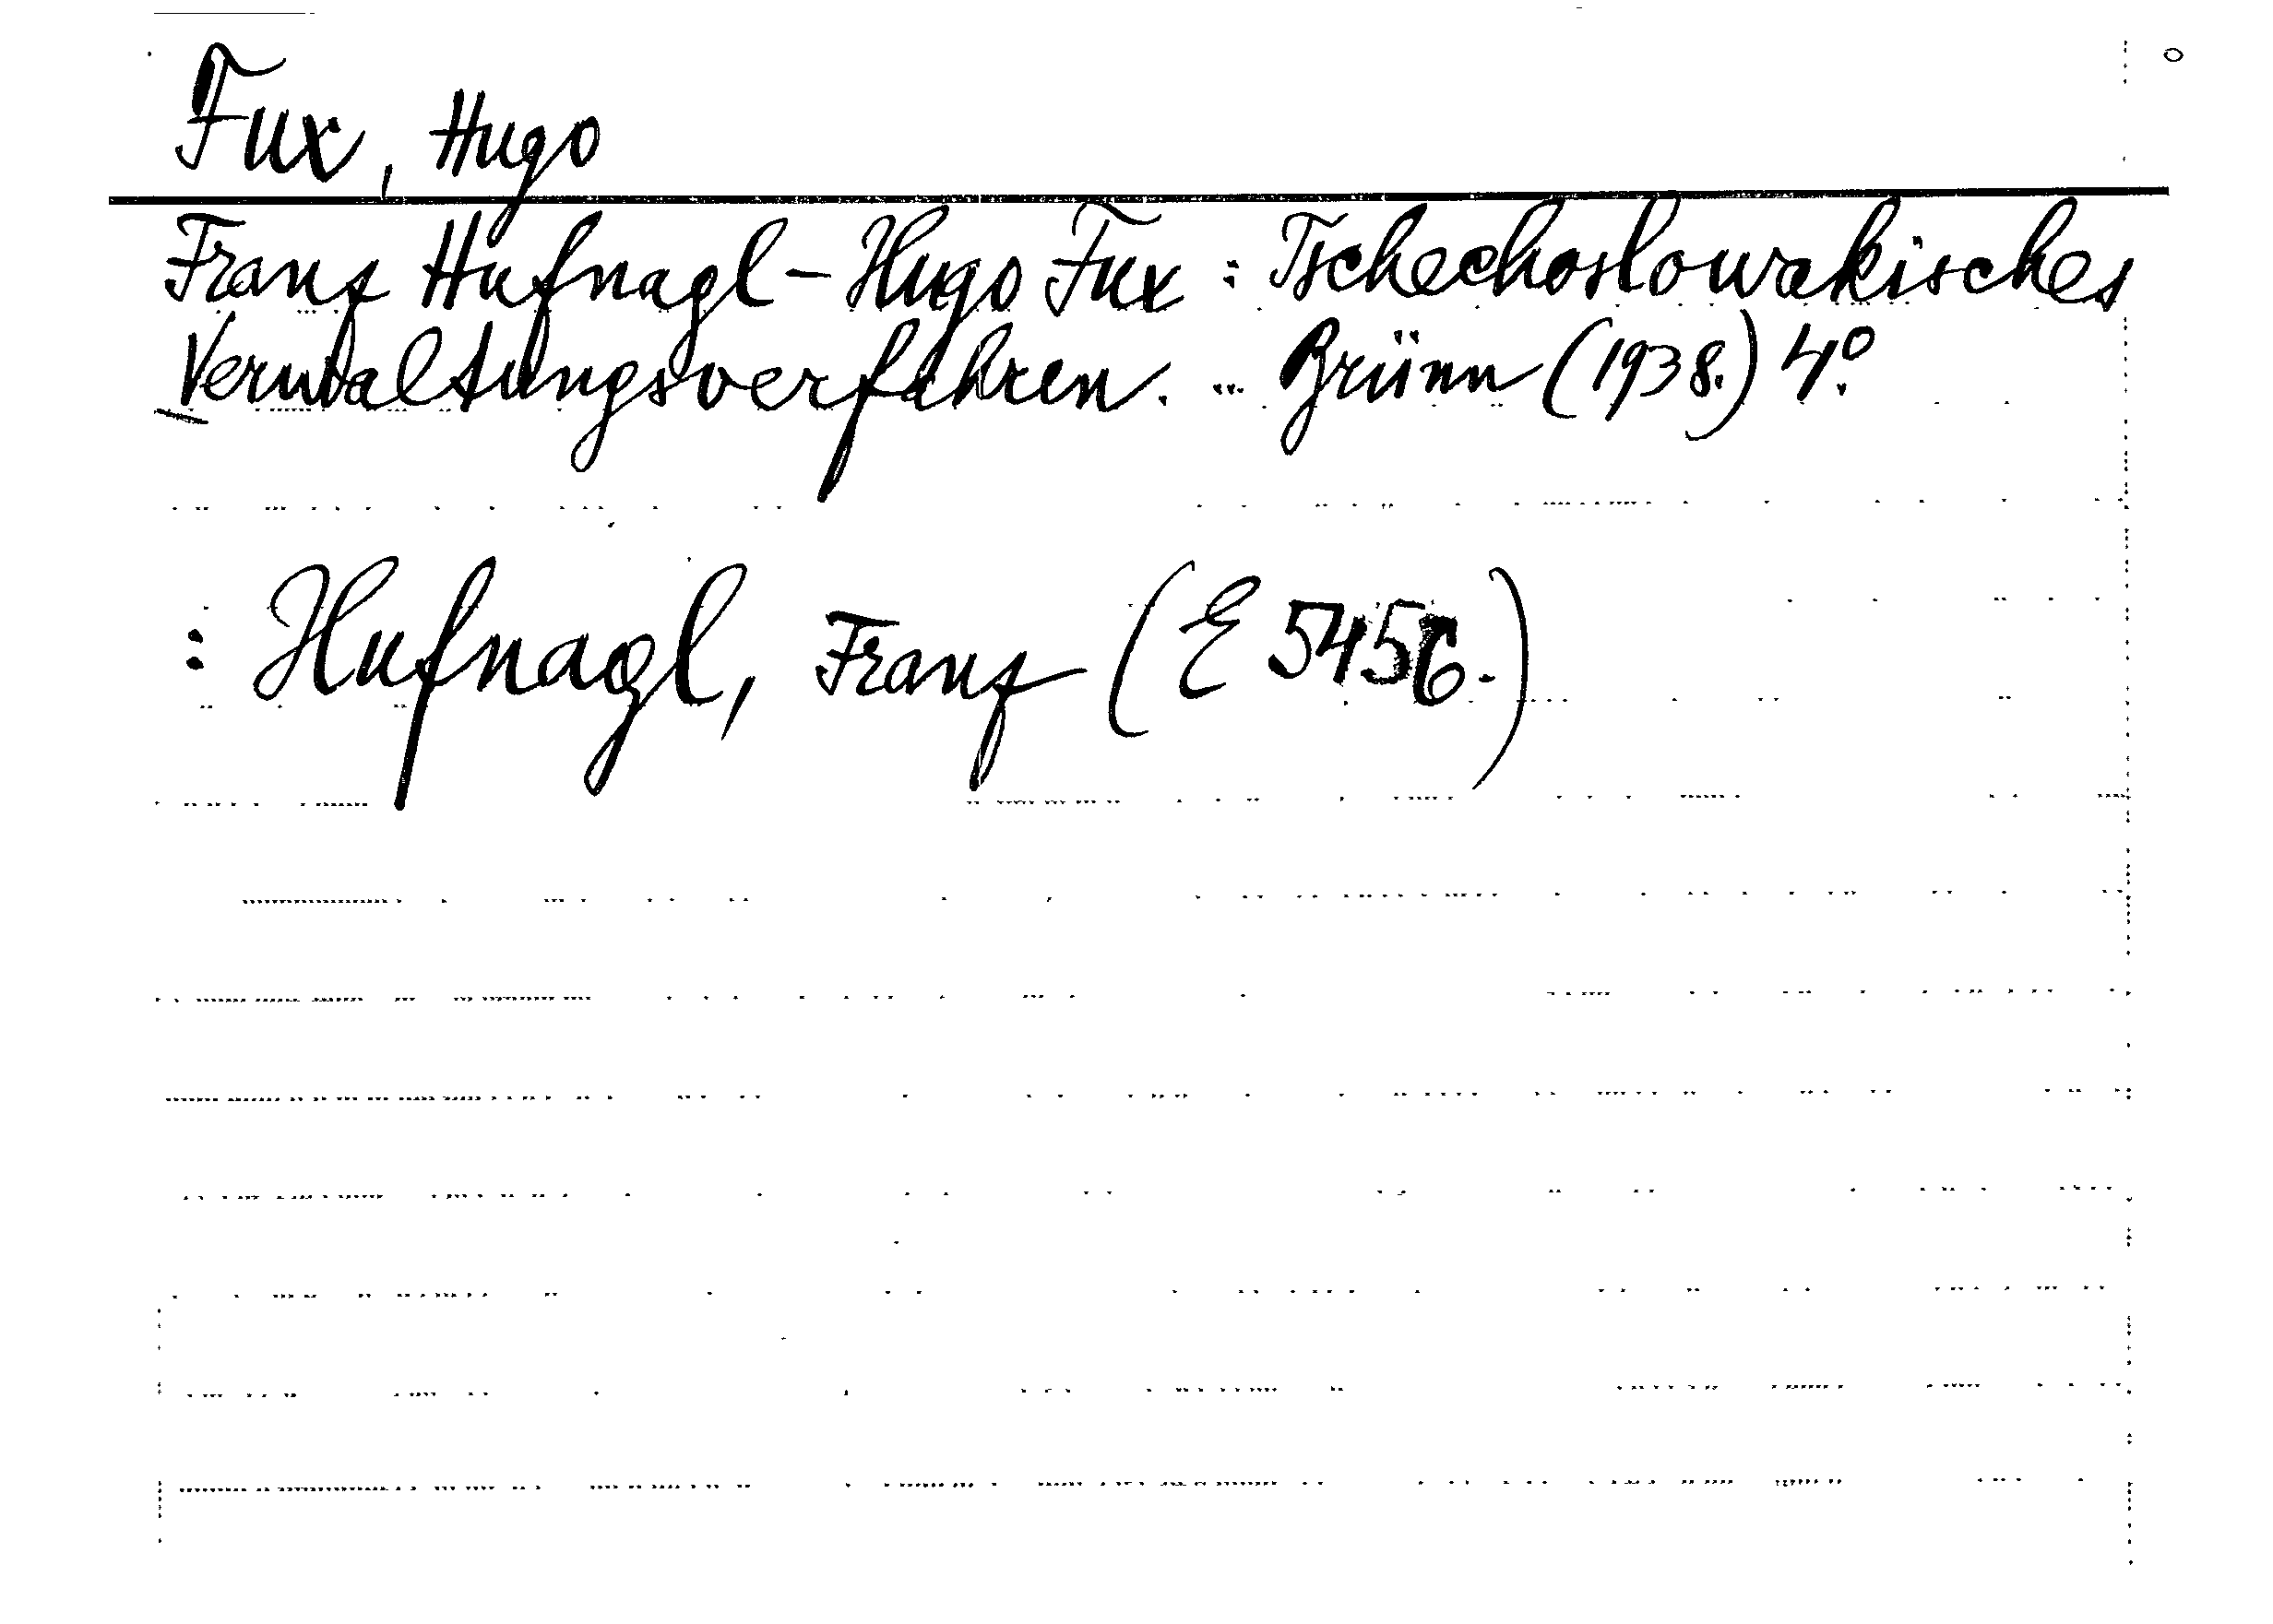 Fux, Hugo
Franz Hufnagl - Hugo Fux : Tschechoslowakisches
Verwaltungsverfahren. .. Brünn (1938.) 4°.
: Hufnagl, Franz (E 5456.)